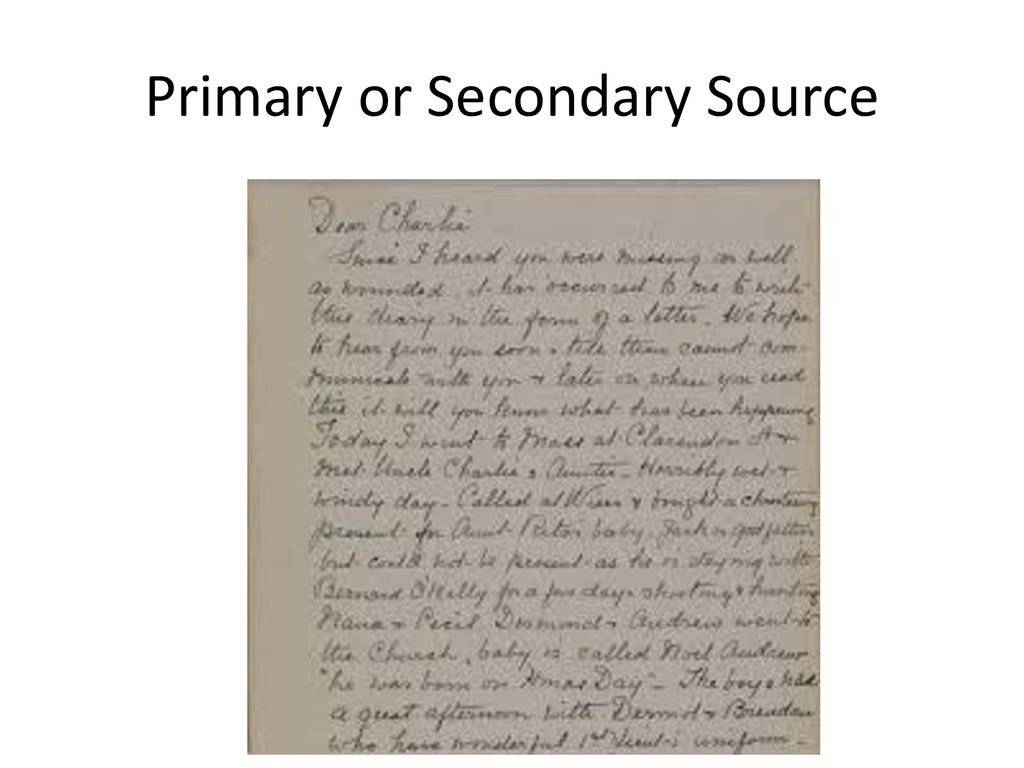 Primary or Secondary Source
Dear Charlie
Since I heard you were missing as well
as wounded, it has occurred to me to write
this diary in the form of a letter. We hope
to hear from you soon & till then cannot com-
municate with you & later on when you read
this it will you know what has been happening
Today I went to Mass at Clarendon St &
met Uncle Charlie & Auntie - Horribly wet &
windy day - Called at & bought a christening
present for Aunt Rita's baby. Jack is godfather
but could not be present as he is staying with
Bernard O'Reilly for a few days shooting & hunting
Mana & Cecil Desmond & Andrew went to
the Church, baby is called Noel Andrew
"he was born on Xmas Day" - The boys had
a great afternoon with Dermot & Brendan
who have wonderful 1st Lieut's uniform -